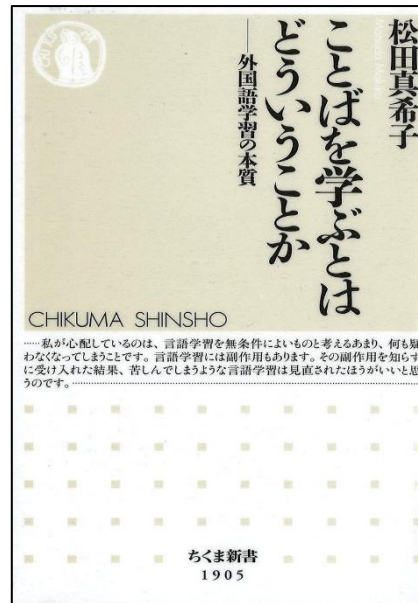 松田真希子
ことばを学ぶとは
どういうことか
──外国語学習の本質
CHIKUMA SHINSHO
……私が心配しているのは、言語学習を無条件によいものと考えるあまり、何も疑
わなくなってしまうことです。言語学習には副作用もあります。その副作用を知らず
に受け入れた結果、苦しんでしまうような言語学習は見直されたほうがいいと思
うのです。
ちくま新書
1905